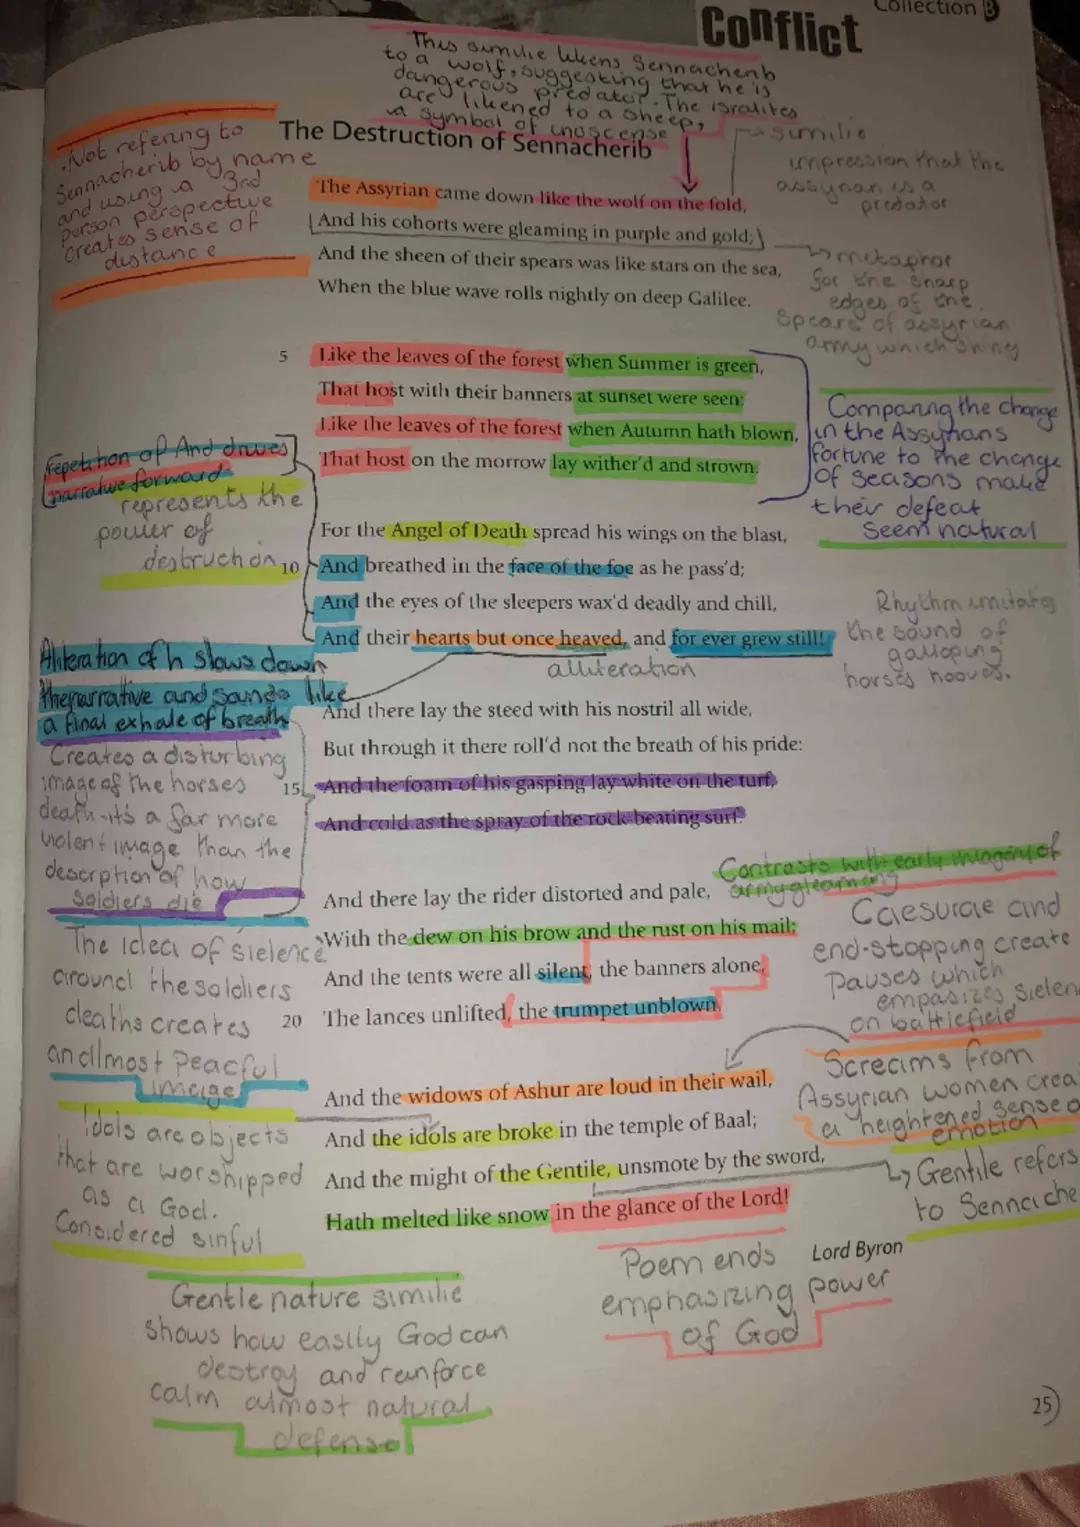 Collection B
Conflict
This similie likens Sennacherib
to a wolf, suggesting that he is
dangerous predator. The isralites
are likened to a sheep,
a symbol of inoscense
The Destruction of Sennacherib
. Not refering to
Sennacherib by name
and using a 3rd
person perspective
creates sense of
distance
similie
impression that the
assyrian is a
predator
The Assyrian came down like the wolf on the fold,
And his cohorts were gleaming in purple and gold;
And the sheen of their spears was like stars on the sea,
When the blue wave rolls nightly on deep Galilee.
metaphor
for the sharp
edges of the
spears of assyrian
army which shiny
5 Like the leaves of the forest when Summer is green,
That host with their banners at sunset were seen:
Like the leaves of the forest when Autumn hath blown,
That host on the morrow lay wither'd and strown.
Comparing the change
in the Assyrians
fortune to the change
of seasons make
their defeat
seem natural
repetition of And drives
narrative forward
represents the
power of
destruction
For the Angel of Death spread his wings on the blast,
10 And breathed in the face of the foe as he pass'd;
And the eyes of the sleepers wax'd deadly and chill,
And their hearts but once heaved, and for ever grew still!
alliteration
Rhythm imitates
the sound of
galloping
horses hooves.
Aliteration of h slows down
the narrative and sounds like
a final exhale of breath
And there lay the steed with his nostril all wide,
But through it there roll'd not the breath of his pride:
15 And the foam of his gasping lay white on the turf,
And cold as the spray of the rock-beating surf.
Creates a disturbing
image of the horses
death-it's a far more
violent image than the
description of how
soldiers die
Contrasts with early imagery of
army gleaming
And there lay the rider distorted and pale,
With the dew on his brow and the rust on his mail;
And the tents were all silent, the banners alone,
20 The lances unlifted, the trumpet unblown.
Caesurae and
end-stopping create
Pauses which
empasizes sielen
on battlefield
The idea of sielence
around the soldiers
deaths creates
an allmost Peacful
image
And the widows of Ashur are loud in their wail,
And the idols are broke in the temple of Baal;
And the might of the Gentile, unsmote by the sword,
Hath melted like snow in the glance of the Lord!
Lord Byron
Screams from
Assyrian women crea
a heightened sense o
emotion
Gentile refers
to Sennache
Idols are objects
that are worshipped
as a God.
Considered sinful
Gentle nature similie
shows how easily God can
destroy and reinforce
calm almost natural
defense
Poem ends
emphasizing power
of God
25